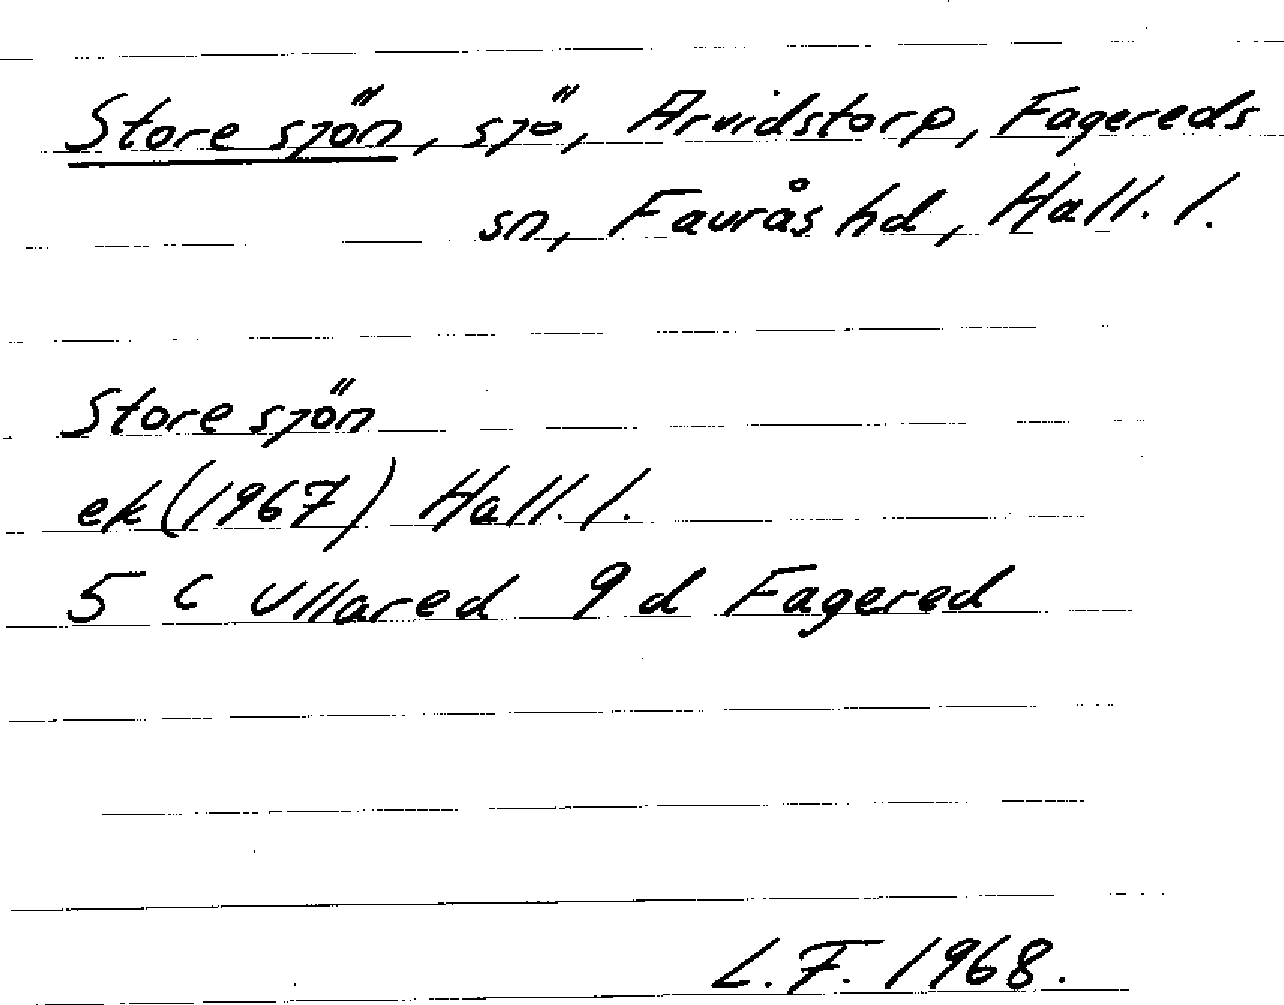 Store sjön, sjö, Arvidstorp, Fagereds
sn, Faurås hd, Hall. l.
Store sjön
ek (1967) Hall. l.
5 C Ullared 9 d Fagered
L.F. 1968.